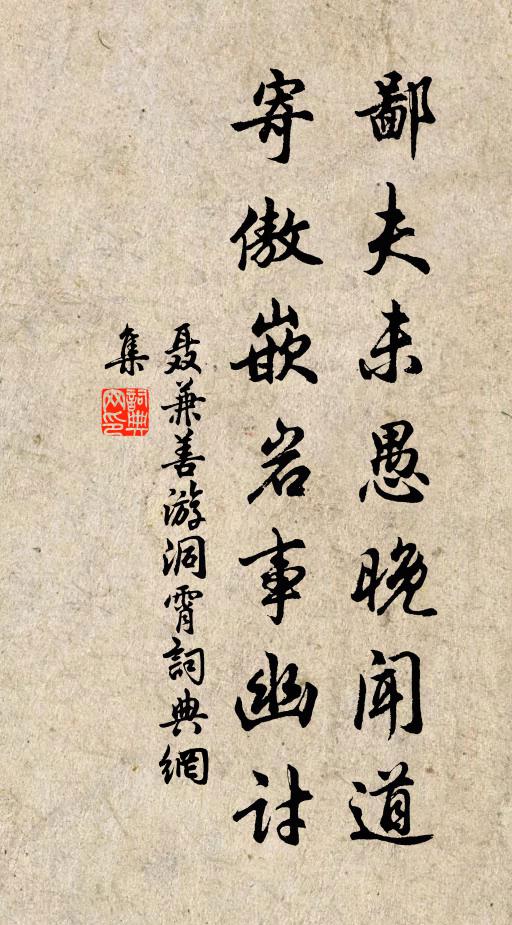 鄙夫未愚晚闻道
寄傲嵌岩事幽讨
聂兼善游洞霄詞典網
集
詞典網印